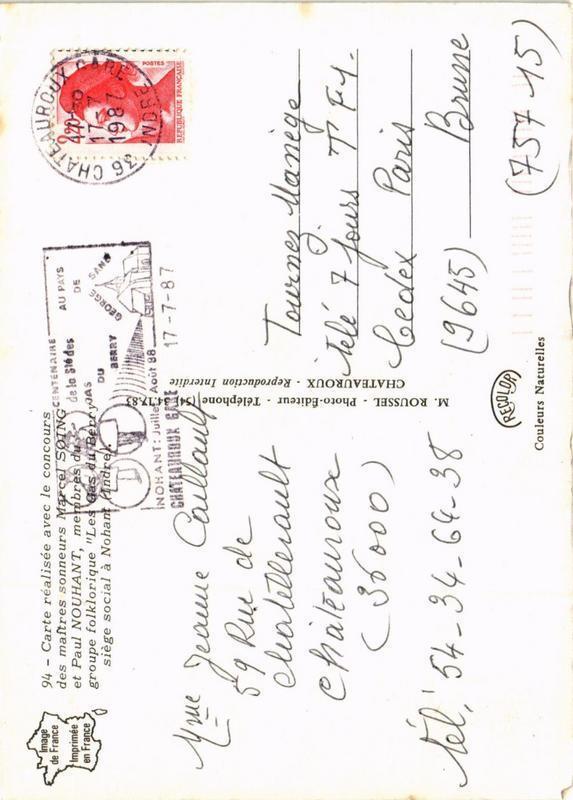 94 - Carte réalisée avec le concours
des maîtres sonneurs Marcel SOING
et Paul NOUHANT, membres du
groupe folklorique "Les Gas du Berry"
siège social à Nohant (Indre)
Image
de France
Imprimée
en France
CENTENAIRE
AU PAYS
DE
GEORGE SAND
GAS
DU
BERRY
NOHANT: Juillet Août 88
CHATEAUROUX GARE
17-7-87
36 CHATEAUROUX GARE
17-7
1987
INDRE
POSTES
2,20
REPUBLIQUE FRANÇAISE
Mme Jeanne Caillault
59 Rue de
Chatellerault
Châteauroux
(36000)
Tél: 54-34-64-38
M. ROUSSEL - Photo-Editeur - Téléphone (54) 34.17.83
CHATEAUROUX - Reproduction Interdite
Tournez Manège
Télé 7 Jours T F 1.
Cedex Paris
(9645) Brune
(757 15)
RECOLOR
Couleurs Naturelles